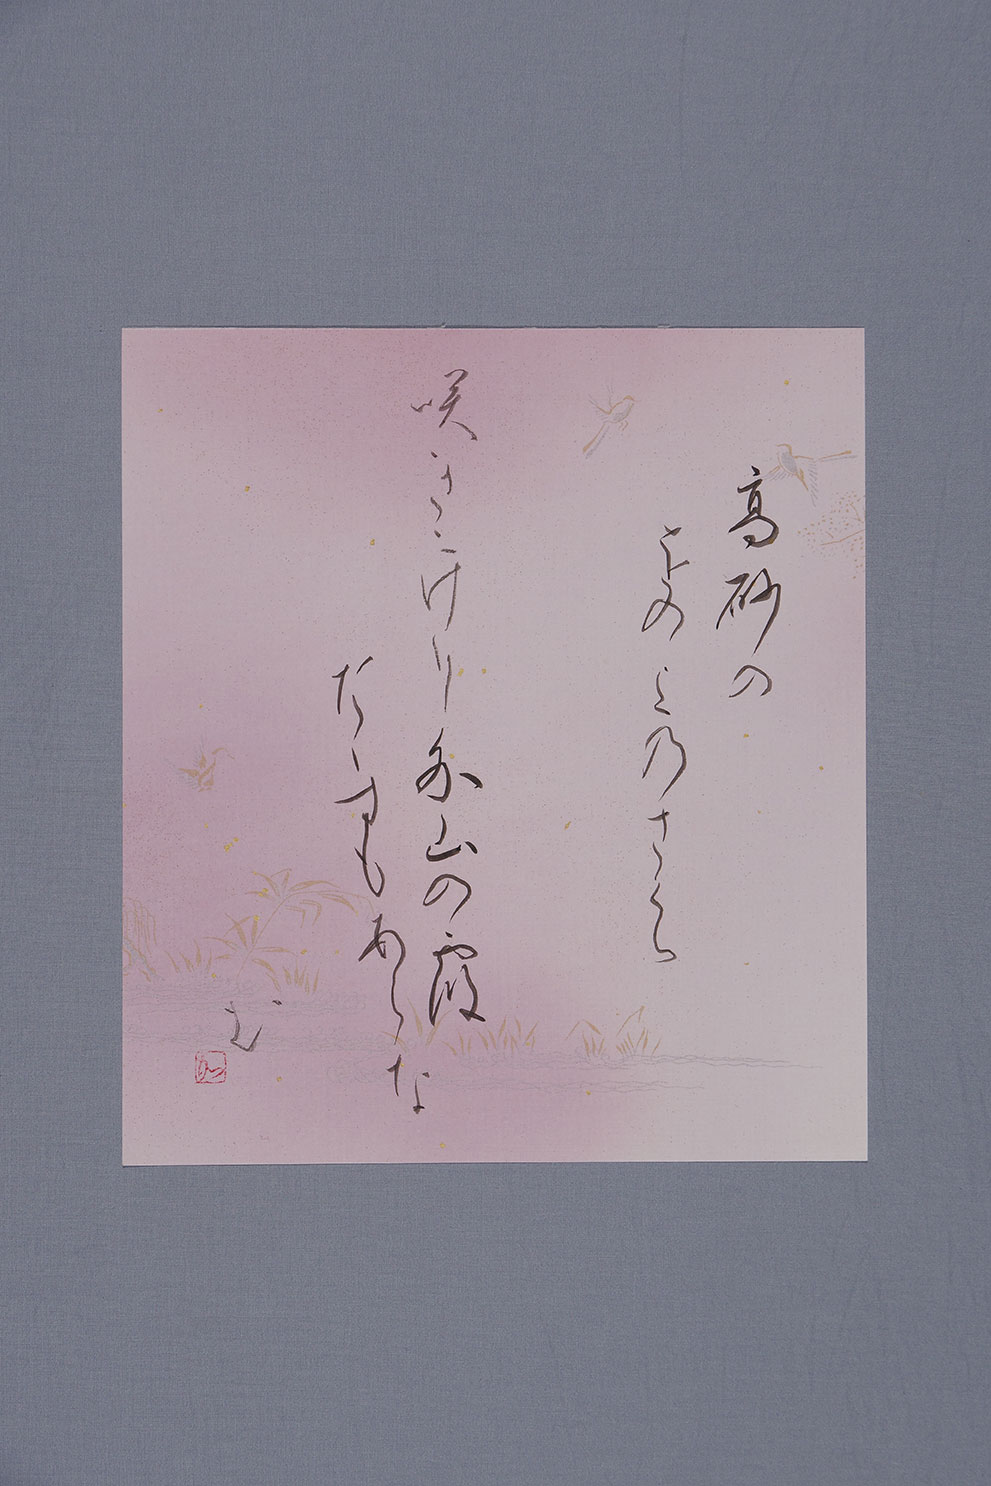 高砂の
をのへ乃さくら
咲きにけり外山の霞
たゝすもあらな
む